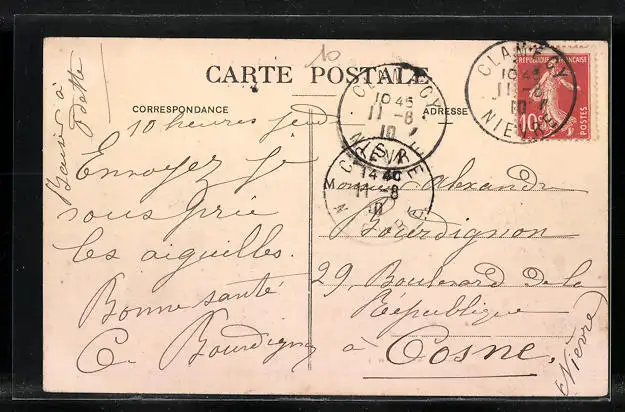 10
CARTE POSTALE
CORRESPONDANCE
ADRESSE
Baiser à
Odette
10 heures jeudi
Envoyez je
vous prie
les aiguilles.
Bonne santé
C. Bourdignon
Monsieur Alexandre
Bourdignon
29, Boulevard de la
République
à Cosne.
(Nièvre)
CLAMECY
10 45
11 - 8
10
NIEVRE
CLAMECY
10 45
11 - 8
10
NIEVRE
14 40
11 - 8
10
REPUBLIQUE FRANÇAISE
10c
POSTES